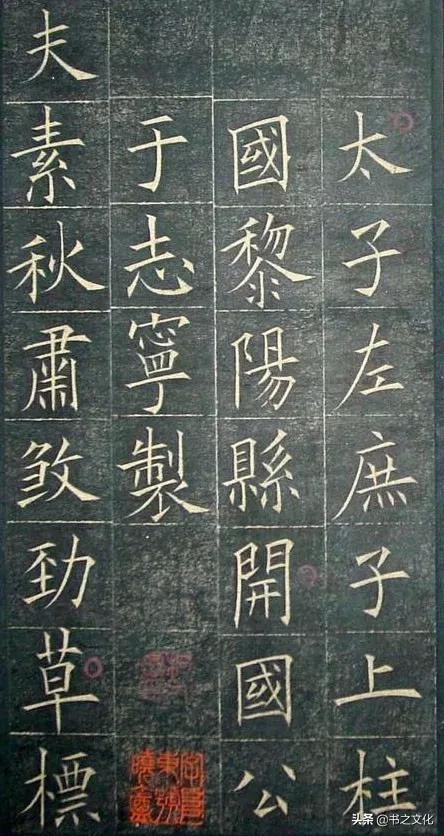 太子左庶子上柱
國黎陽縣開國公
于志寧製
夫素秋肅煞勁草標
头条 @书之文化